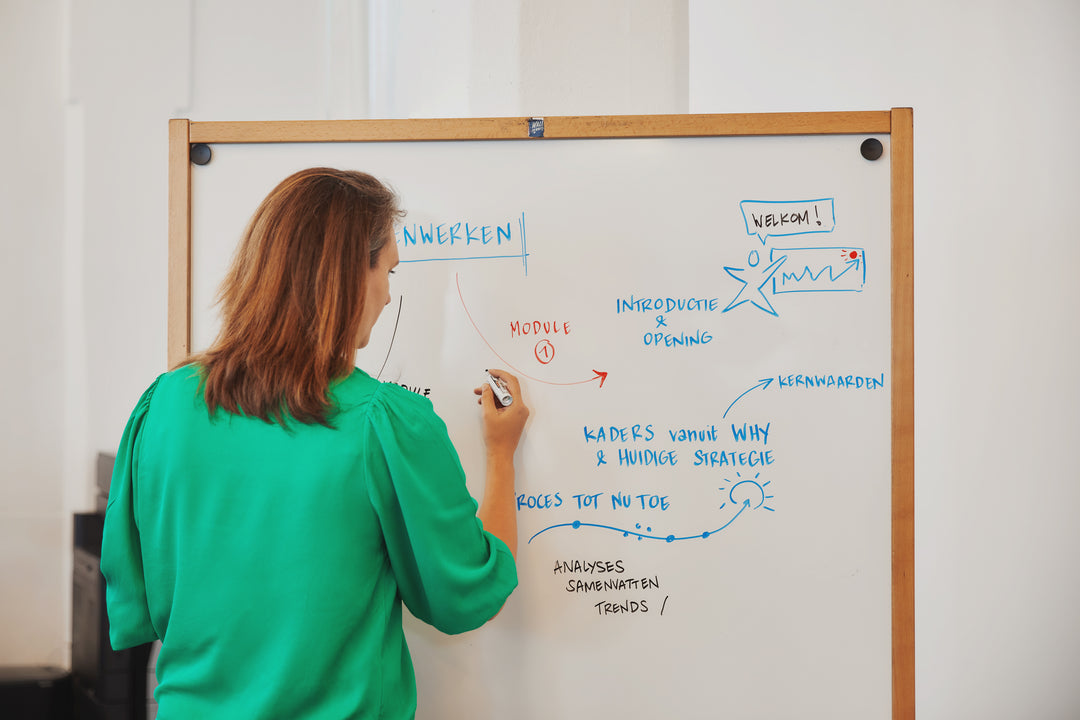 ENWERKEN
WELKOM!
MODULE
1
INTRODUCTIE
&
OPENING
KERNWAARDEN
KADERS vanuit WHY
& HUIDIGE STRATEGIE
ROCES TOT NU TOE
ANALYSES
SAMENVATTEN
TRENDS /